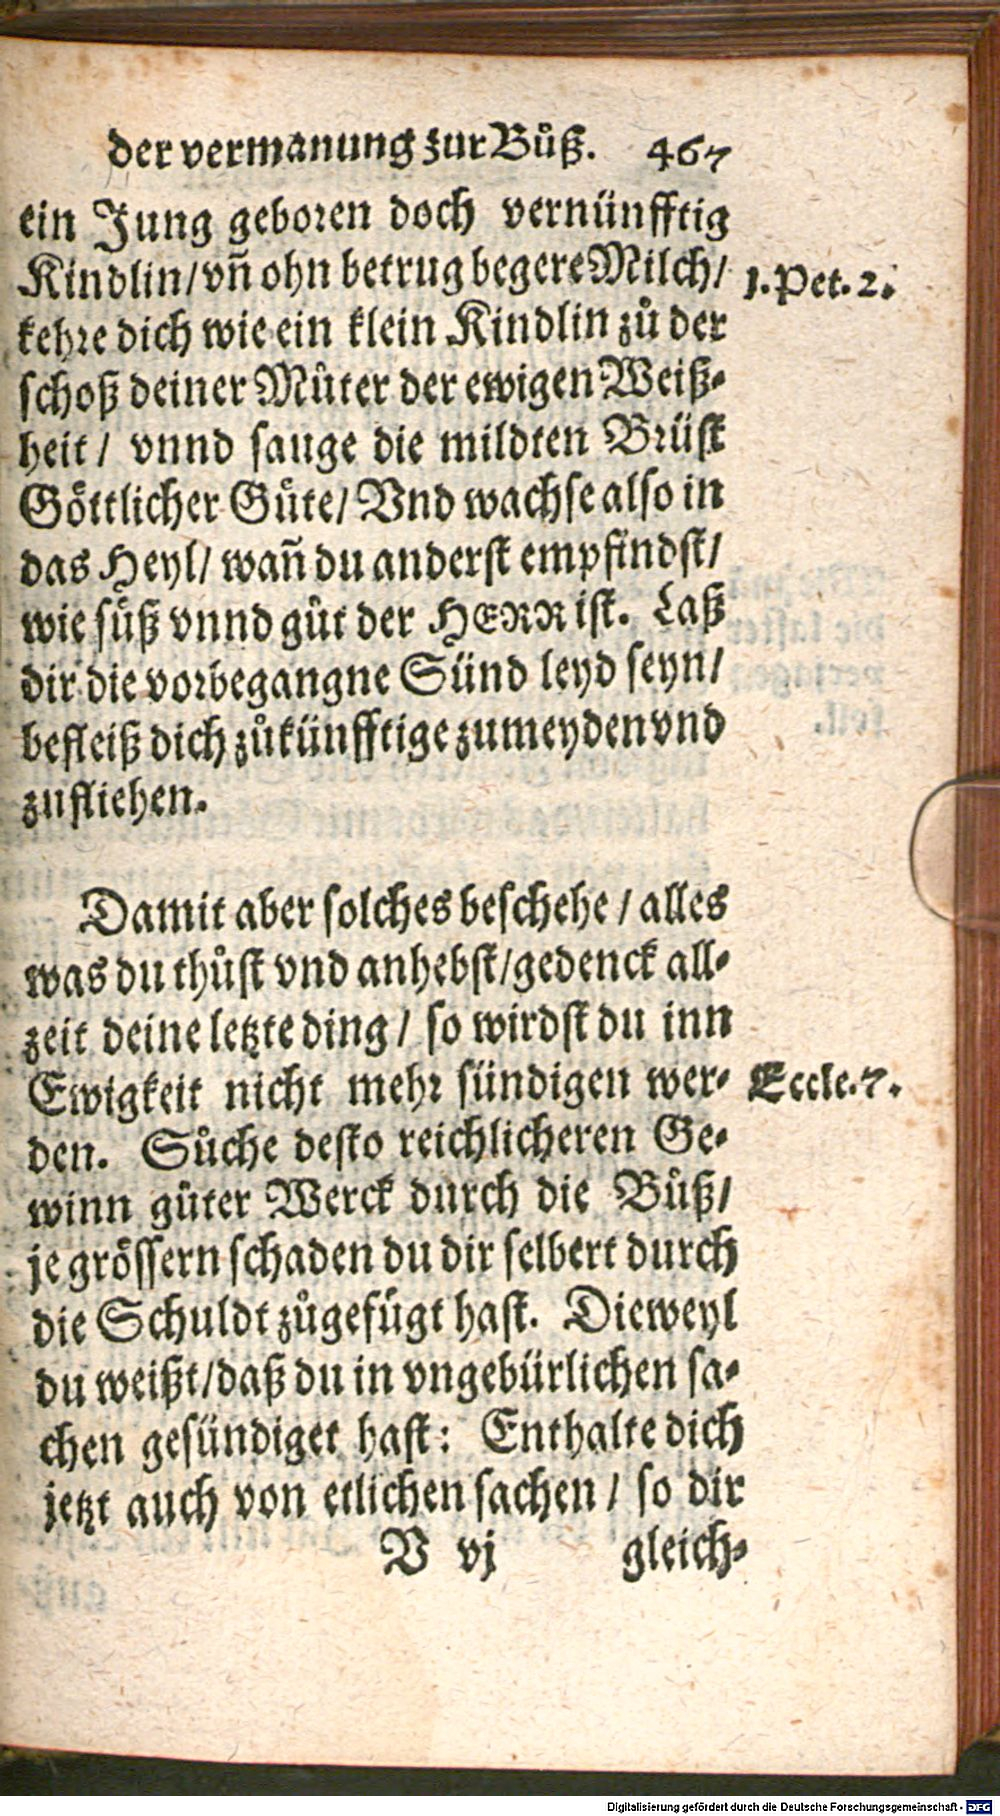 der vermanung zur Bůß. 467
ein Jung geboren doch vernünfftig
Kindlin/vñ ohn betrug begere Milch/
1. Pet. 2.
kehre dich wie ein klein Kindlin zů der
schoß deiner Můter der ewigen Weiß-
heit/ vnnd sauge die mildten Brüst
Göttlicher Güte/ Vnd wachse also in
das Heyl/ wañ du anderst empfindst/
wie süß vnnd gůt der HERR ist. Laß
dir die vorbegangne Sünd leyd seyn/
befleiß dich zůkünfftige zumeyden vnd
zufliehen.
Damit aber solches beschehe/ alles
was du thůst vnd anhebst/gedenck all-
zeit deine letzte ding/ so wirdst du inn
Ewigkeit nicht mehr sündigen wer-
Eccle. 7.
den. Sůche desto reichlicheren Ge-
winn gůter Werck durch die Bůß/
je grössern schaden du dir selbert durch
die Schuldt zůgefügt hast. Dieweyl
du weißt/daß du in vngebürlichen sa-
chen gesündiget hast: Enthalte dich
jetzt auch von etlichen sachen/ so dir
V vj gleich-
Digitalisierung gefördert durch die Deutsche Forschungsgemeinschaft - DFG